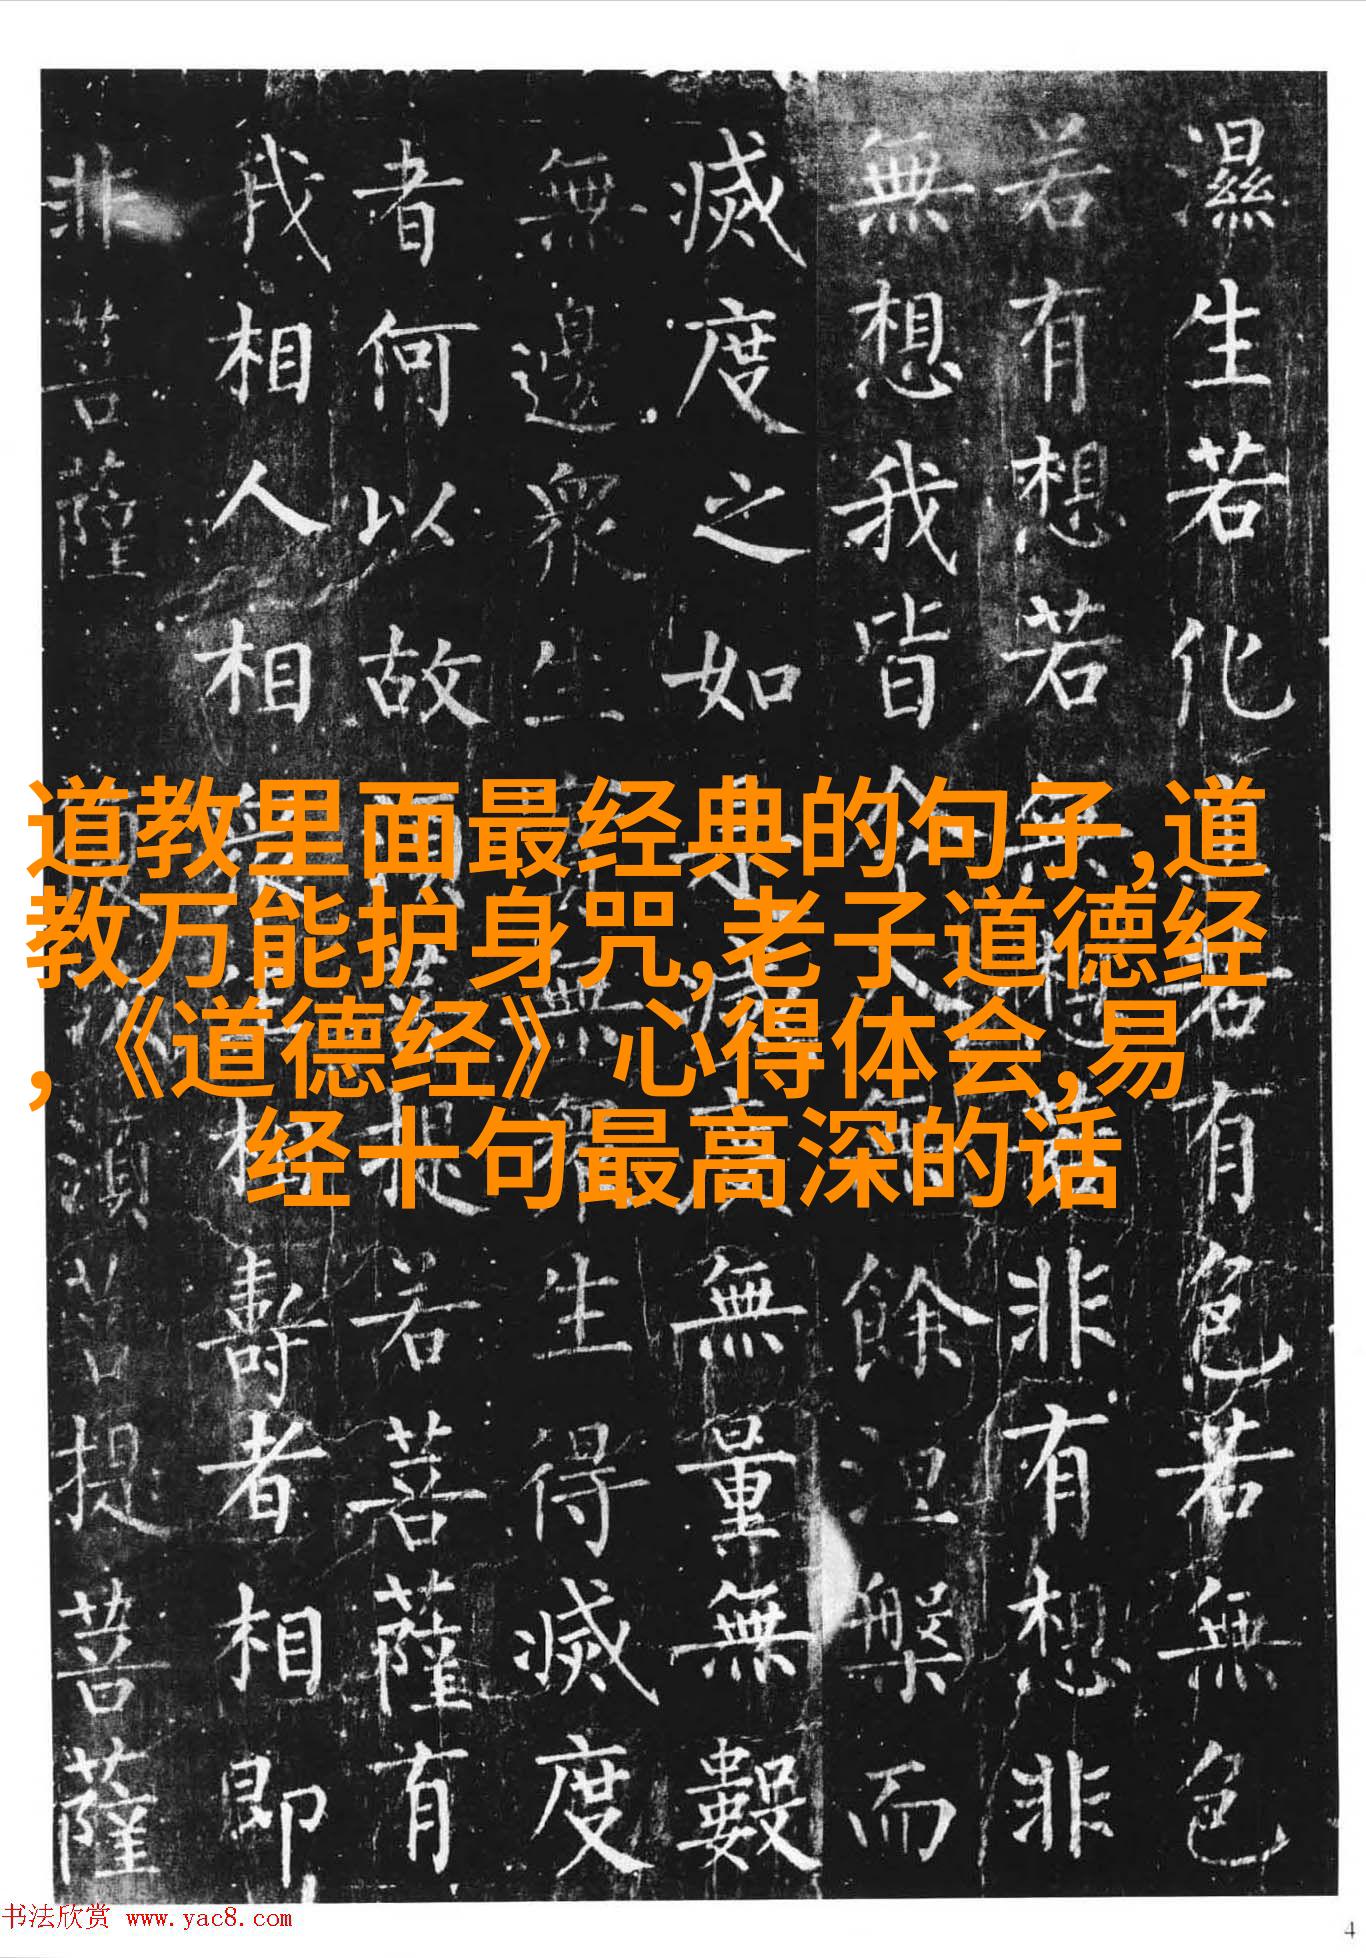 濕生若化若有色若無色
若有想若無想若非有想非
無想我皆令入無餘涅槃而
滅度之如是滅度無量無數
無邊衆生實無衆生得滅度
者何以故須菩提若菩薩有
我相人相衆生相壽者相即
非菩薩須菩提菩薩
道教里面最经典的句子,道
教万能护身咒,老子道德经
,《道德经》心得体会,易
经十句最高深的话
书法欣赏 www.yac8.com
4